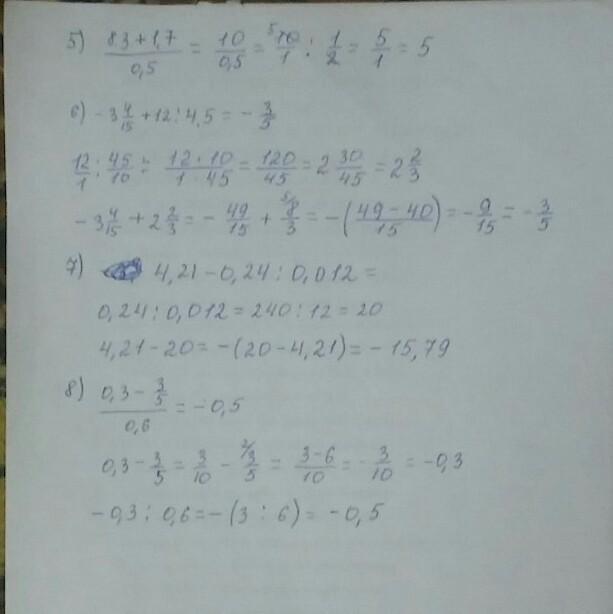 5) \frac{8,3+1,7}{0,5} = \frac{10}{0,5} = \frac{^5 10}{1} : \frac{1}{2} = \frac{5}{1} = 5
6) -3\frac{4}{15} + 12 : 4,5 = -\frac{3}{5}
\frac{12}{1} : \frac{45}{10} = \frac{12 \cdot 10}{1 \cdot 45} = \frac{120}{45} = 2\frac{30}{45} = 2\frac{2}{3}
-3\frac{4}{15} + 2\frac{2}{3} = -\frac{49}{15} + ^{5/}\frac{8}{3} = -(\frac{49-40}{15}) = -\frac{9}{15} = -\frac{3}{5}
7) 4,21 - 0,24 : 0,012 =
0,24 : 0,012 = 240 : 12 = 20
4,21 - 20 = -(20 - 4,21) = -15,79
8) \frac{0,3 - \frac{3}{5}}{0,6} = -0,5
0,3 - \frac{3}{5} = \frac{3}{10} - ^{2/}\frac{3}{5} = \frac{3-6}{10} = -\frac{3}{10} = -0,3
-0,3 : 0,6 = -(3 : 6) = -0,5